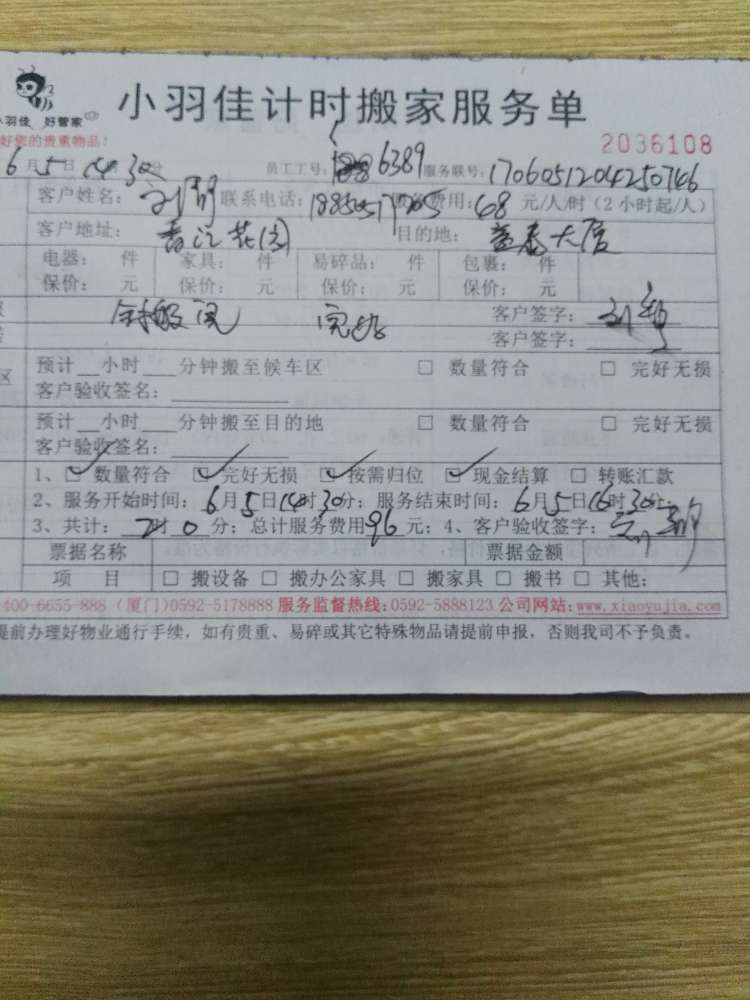 小羽佳计时搬家服务单
小羽佳 好管家
好您的贵重物品!
2036108
6月5日14 30分 员工工号: 6389 服务联号: 1706051204250746
客户姓名: 联系电话: 费用: 68 元/人/时(2小时起/人)
客户地址: 香江花园 目的地: 大厦
电器: 件 家具: 件 易碎品: 件 包裹: 件
保价: 元 保价: 元 保价: 元 保价: 元
客户签字:
客户签字:
预计__小时___分钟搬至候车区 □ 数量符合 □ 完好无损
客户验收签名:
预计__小时___分钟搬至目的地 □ 数量符合 □ 完好无损
客户验收签名:
1、☑ 数量符合 ☑ 完好无损 ☑ 按需归位 ☑ 现金结算 □ 转账汇款
2、服务开始时间: 6月5日14时30分; 服务结束时间: 6月5日16时30分;
3、共计: 2时0分; 总计服务费用96元; 4、客户验收签字:
票据名称 票据金额
项 目 □ 搬设备 □ 搬办公家具 □ 搬家具 □ 搬书 □ 其他:
400-6655-888 (厦门)0592-5178888 服务监督热线:0592-5888123 公司网站:www.xiaoyujia.com
提前办理好物业通行手续,如有贵重、易碎或其它特殊物品请提前申报,否则我司不予负责。